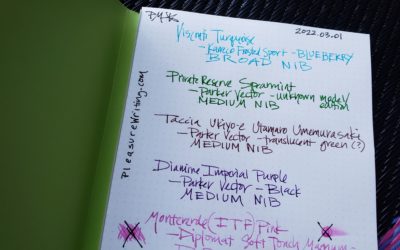 2022.03.01
Visconti Turquoise
-Kaweco Frosted Sport - BLUEBERRY
BROAD NIB
Private Reserve Spearmint
-Parker Vector -unknown model/
edition
MEDIUM NIB
Taccia Ukiyo-e Utamaro Umemurasaki
-Parker Vector - translucent green (?)
MEDIUM NIB
Diamine Imperial Purple
-Parker Vector - Black
MEDIUM NIB
Monteverde (ITF) Pink
-Diplomat Soft Touch Magnum -
PleasureWriting.com